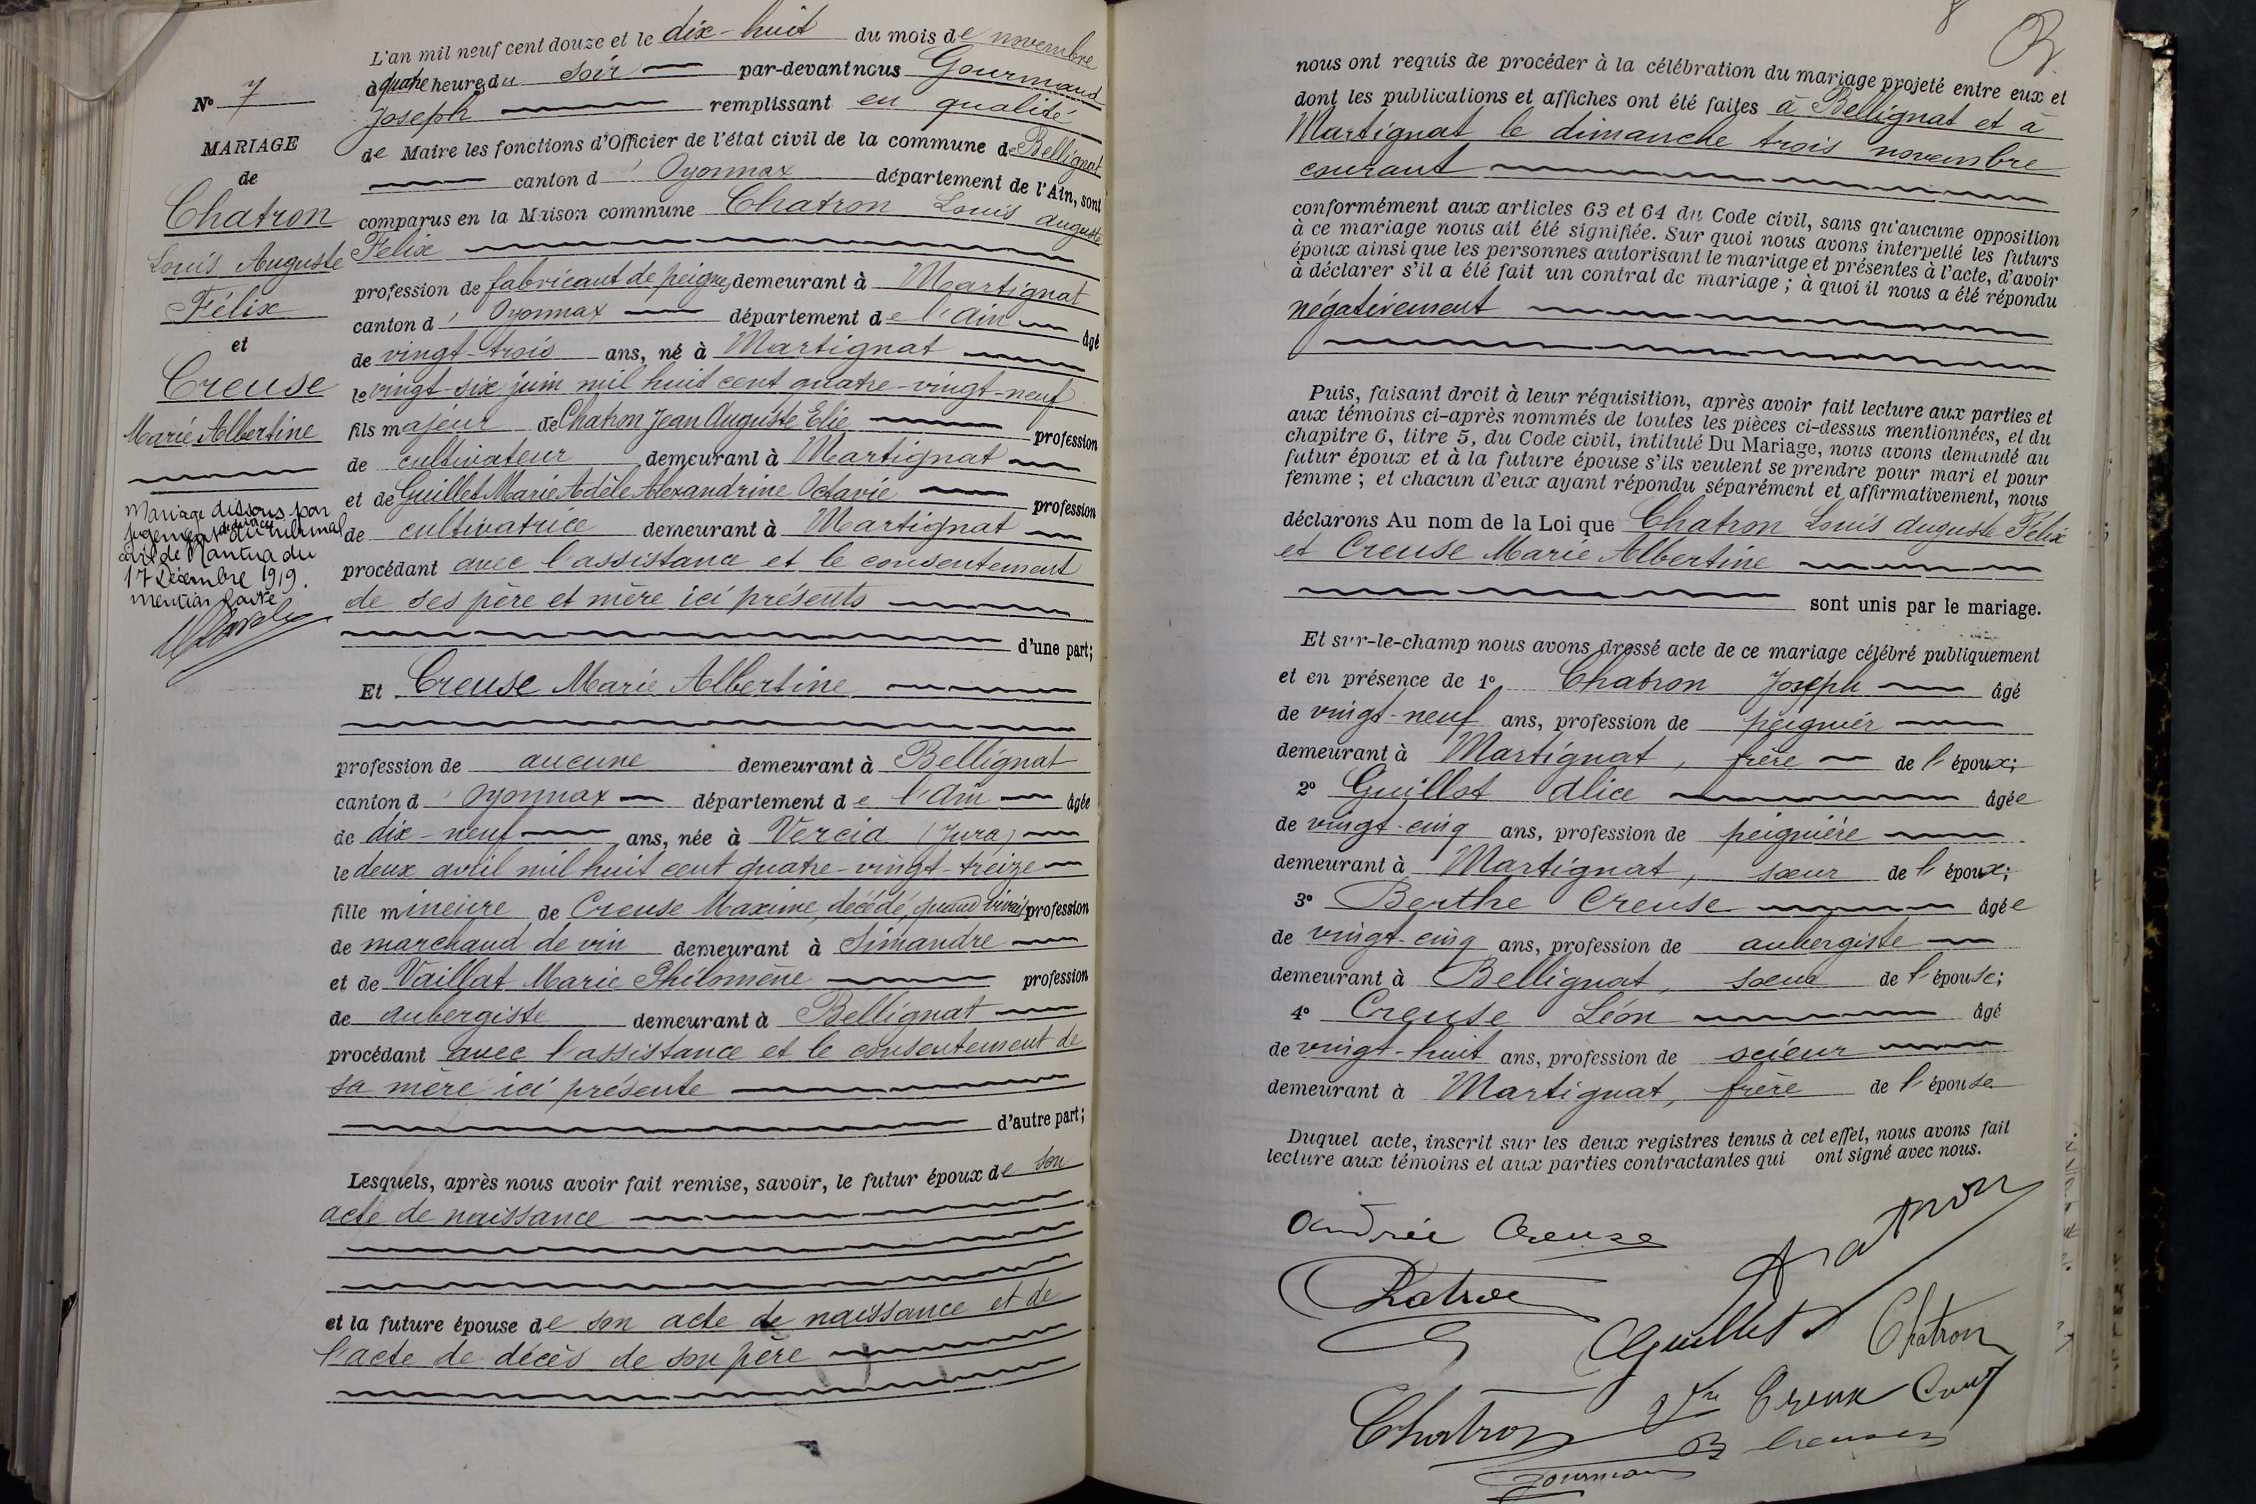 N° 7
MARIAGE
de
Chatron
Louis Auguste
Félix
et
Creuse
Marie Albertine
Mariage dissous par
jugement du tribunal
civil de Nantua du
17 Décembre 1919.
mention faite
L'an mil neuf cent douze et le dix-huit du mois de novembre
à quatre heures du soir par-devant nous Gourmand
Joseph remplissant en qualité
de Maire les fonctions d'Officier de l'état civil de la commune de Bellignat
canton d'Oyonnax département de l'Ain, sont
comparus en la Maison commune Chatron Louis Auguste
Félix
profession de fabricant de peignes demeurant à Martignat
canton d'Oyonnax département de l'Ain âgé
de vingt-trois ans, né à Martignat
le vingt-six juin mil huit cent quatre-vingt-neuf
fils majeur de Chatron Jean Auguste Elie profession
de cultivateur demeurant à Martignat
et de Guillet Marie Adèle Alexandrine Octavie profession
de cultivatrice demeurant à Martignat
procédant avec l'assistance et le consentement
de ses père et mère ici présents
d'une part;
Et Creuse Marie Albertine
profession de aucune demeurant à Bellignat
canton d'Oyonnax département de l'Ain âgée
de dix-neuf ans, née à Vercia (Jura)
le deux avril mil huit cent quatre-vingt-treize
fille mineure de Creuse Maxime, décédé, quand vivait profession
de marchand de vin demeurant à Simandre
et de Vaillat Marie Philomène profession
de aubergiste demeurant à Bellignat
procédant avec l'assistance et le consentement de
sa mère ici présente
d'autre part;
Lesquels, après nous avoir fait remise, savoir, le futur époux de son
acte de naissance
et la future épouse de son acte de naissance et de
l'acte de décès de son père
nous ont requis de procéder à la célébration du mariage projeté entre eux et
dont les publications et affiches ont été faites à Bellignat et à
Martignat le dimanche trois novembre
courant
conformément aux articles 63 et 64 du Code civil, sans qu'aucune opposition
à ce mariage nous ait été signifiée. Sur quoi nous avons interpellé les futurs
époux ainsi que les personnes autorisant le mariage et présentes à l'acte, d'avoir
à déclarer s'il a été fait un contrat de mariage; à quoi il nous a été répondu
négativement
Puis, faisant droit à leur réquisition, après avoir fait lecture aux parties et
aux témoins ci-après nommés de toutes les pièces ci-dessus mentionnées, et du
chapitre 6, titre 5, du Code civil, intitulé Du Mariage, nous avons demandé au
futur époux et à la future épouse s'ils veulent se prendre pour mari et pour
femme; et chacun d'eux ayant répondu séparément et affirmativement, nous
déclarons Au nom de la Loi que Chatron Louis Auguste Félix
et Creuse Marie Albertine
sont unis par le mariage.
Et sur-le-champ nous avons dressé acte de ce mariage célébré publiquement
et en présence de 1° Chatron Joseph âgé
de vingt-neuf ans, profession de peignier
demeurant à Martignat, frère de l'époux;
2° Guillot Alice âgée
de vingt-cinq ans, profession de peignière
demeurant à Martignat, sœur de l'époux;
3° Berthe Creuse âgée
de vingt-cinq ans, profession de aubergiste
demeurant à Bellignat, soeur de l'épouse;
4° Creuse Léon âgé
de vingt-huit ans, profession de scieur
demeurant à Martignat, frère de l'épouse
Duquel acte, inscrit sur les deux registres tenus à cet effet, nous avons fait
lecture aux témoins et aux parties contractantes qui ont signé avec nous.
Andrée Creuse
Chatron
Chatron
Guillet
Chatron
Chatron
Vve Creuse
B Creuse
Gourmand